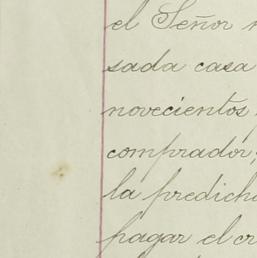 el Señor
sada casa
novecientos
comprador;
la predicha
pagar el